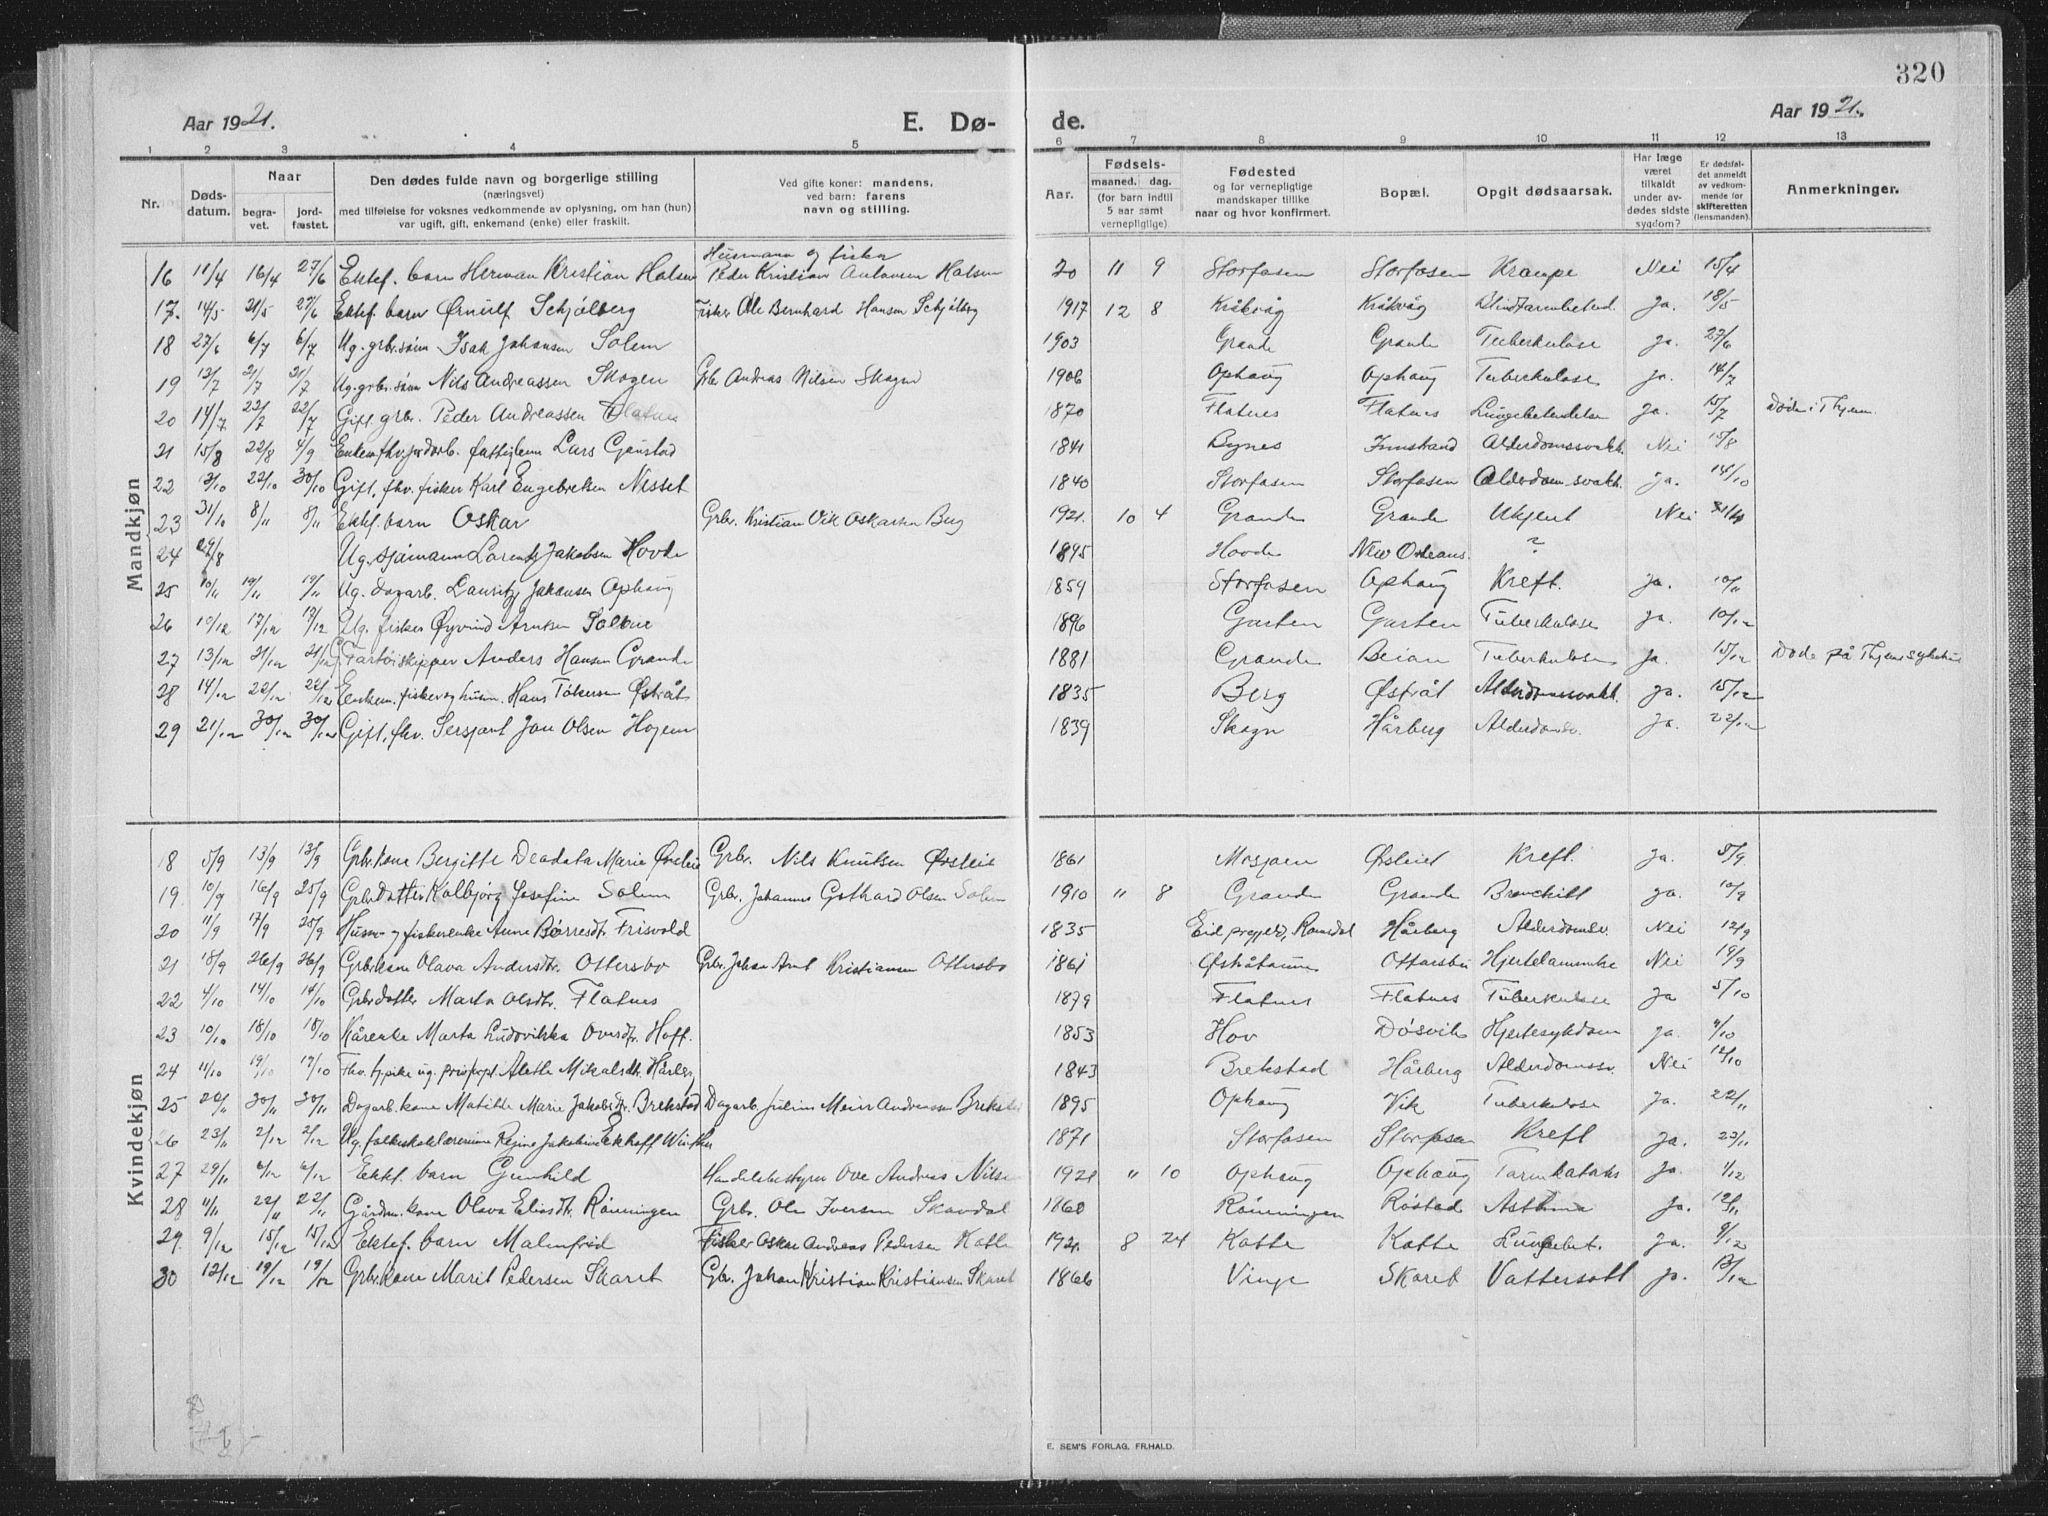 320
Aar 1921.
E. Dø-
de.
Aar 1921.
1 2 3 4 5 6 7 8 9 10 11 12 13
Nr.
Døds-
datum.
Naar
begra-
vet.
jord-
fæstet.
Den dødes fulde navn og borgerlige stilling
(næringsvei)
med tilføielse for voksnes vedkommende av oplysning, om han (hun)
var ugift, gift, enkemand (enke) eller fraskilt.
Ved gifte koner: mandens,
ved barn: farens
navn og stilling.
Aar.
Fødsels-
maaned. dag.
(for barn indtil
5 aar samt
vernepligtige).
Fødested
og for vernepligtige
mandskaper tillike
naar og hvor konfirmert.
Bopæl.
Opgit dødsaarsak.
Har læge
været
tilkaldt
under av-
dødes sidste
sygdom?
Er dødsfal-
det anmeldt
av vedkom-
mende for
skifteretten
(lensmanden).
Anmerkninger.
Mandkjøn
Husmann og fisker
16 11/4 16/4 27/6 Ektef. barn Herman Kristian Halsen Peder Kristian Antonsen Halsen 20 11 9 Storfosen Storfosen Krampe Nei 15/4
17. 14/5 21/5 27/6 Ektef. barn Ørnulf Schjølberg Fisker Ole Bernhard Hansen Schjølberg 1917 12 8 Kråkvåg Kråkvåg Blindtarmbetend. Ja. 18/5
18 27/6 6/7 6/7 Ug. grbr.søn Isak Johansen Solem 1903 Grande Grande Tuberkulose ja. 27/6
19 13/7 21/7 21/7 Ug. grbr.søn Nils Andreassen Skogen Grbr Andreas Nilsen Skogen 1906 Ophaug Ophaug Tuberkulose ja. 14/7
20 14/7 22/7 22/7 Gift grbr. Peder Andreassen Flatnes 1870 Flatnes Flatnes Lungebetendelse ja. 15/7 Døde i Thjem.
21 15/8 22/8 4/9 Enkem. fhv. jordarb. fattiglem Lars Gjenstad 1841 Bynes Innstrand Alderdomssvakh. Nei 15/8
22 3/10 22/10 30/10 Gift, fhv. fisker Karl Engebretsen Nesset 1840 Storfosen Storfosen Alderdomsvakh. ja. 14/10
23 31/10 8/11 8/11 Ektef. barn Oskar Grbr. Kristian Vik Oskarsen Berg 1921. 10 4 Grande Grande Ukjent Nei
24 29/8 Ug. sjømann Lorentz Jakobsen Hovde 1895 Hovde New Orleans. ?
25 10/11 19/11 19/11 Ug. dagarb. Lauritz Johansen Ophaug 1859 Storfosen Ophaug Kreft. ja. 10/11
26 10/12 17/12 17/12 Ug. fisker Øyvind Arntsen 1896 Garten Garten Tuberkulose ja. 10/12
27 13/12 21/12 21/12 G. Fartøiskipper Anders Hansen Grande 1881 Grande Beian Tuberkulose ja. 15/12 Døde på Thjems sykehus
28 14/12 22/12 22/12 Enkem. fisker og husm. Hans Tokersen Østråt 1835 Berg Østråt Alderdomssvakh. ja. 15/12
29 21/12 30/12 30/12 Gift, fhv. Sersjant Jon Olsen Hojem 1839 Skogn Hårberg Alderdomsv. ja. 22/12
Kvindekjøn
18 5/9 13/9 13/9 Grbr.kone Bergitte Deodata Marie Ørsleie Grbr. Nils Knutsen Ørsleie 1861 Mosjøen Ørsleiet Kreft. ja. 5/9
19 10/9 16/9 25/9 Grbr.datter Kolbjørg Josefine Solem Grbr. Johannes Gothard Olsen Solem 1910 11 8 Grande Grande Bronchitt ja. 10/9
20 11/9 17/9 25/9 Husm- og fiskerenke Anne Børresdt. Frisvold 1835 Eid prgjeld, Romsdal Hårberg Alderdomsv. Nei 12/9
21 18/9 26/9 26/9 Grbr.kone Olava Andersdt. Ottersbo Grbr. Johan Arnt Kristiansen Ottersbo 1861 Ottersbo Hjertelammelse Nei 19/9
22 4/10 14/10 14/10 Grbr.datter Marta Olsdt. Flatnes 1879 Flatnes Flatnes Tuberkulose ja 5/10
23 10/10 18/10 18/10 Kårenke Marta Ludovikka Oversdt. Hoff. 1853 Hov Døsvik Hjertesykdom ja. 11/10
24 11/10 19/10 19/10 Fhv. Alette Mikalsdt. Hårberg 1843 Brekstad Hårberg Alderdomssv. Nei 12/10
25 20/11 30/11 30/11 Dagarb.kone Matilde Marie Jakobsdt. Brekstad Dagarb. Julius Meier Andreassen Brekstad 1895 Ophaug Vik Tuberkulose ja. 22/11
26 23/11 2/12 2/12 Ug. folkeskolelærerinne Regine Jakobine Ekhoff Winther 1871 Storfosen Storfosen Kreft ja. 23/11
27 29/11 6/12 6/12 Ektef. barn Gunhild Handelsbestyrer Ove Andreas Nilsen 1921 11 10 Ophaug Ophaug Tarmkatarh ja. 1/12
28 11/11 22/11 22/11 Gårdm. kone Olava Eliasdt. Rønningen Grbr. Ole Iversen Skavdal 1860 Rønningen Røstad Asthma ja. 12/11
29. 9/12 15/12 15/12 Ektef. barn Malmfrid Fisker Oskar Andreas Pedersen Kotte 1921. 8 24 Kotte Kotte Lungebet. ja. 9/12
30 12/12 19/12 19/12 Grbr.kone Marit Pedersen Skaret Gbr. Johan Kristian Kristiansen Skaret 1866 Vinge Skaret Vattersott ja. 13/12
E. SEM'S FORLAG, FR.HALD.